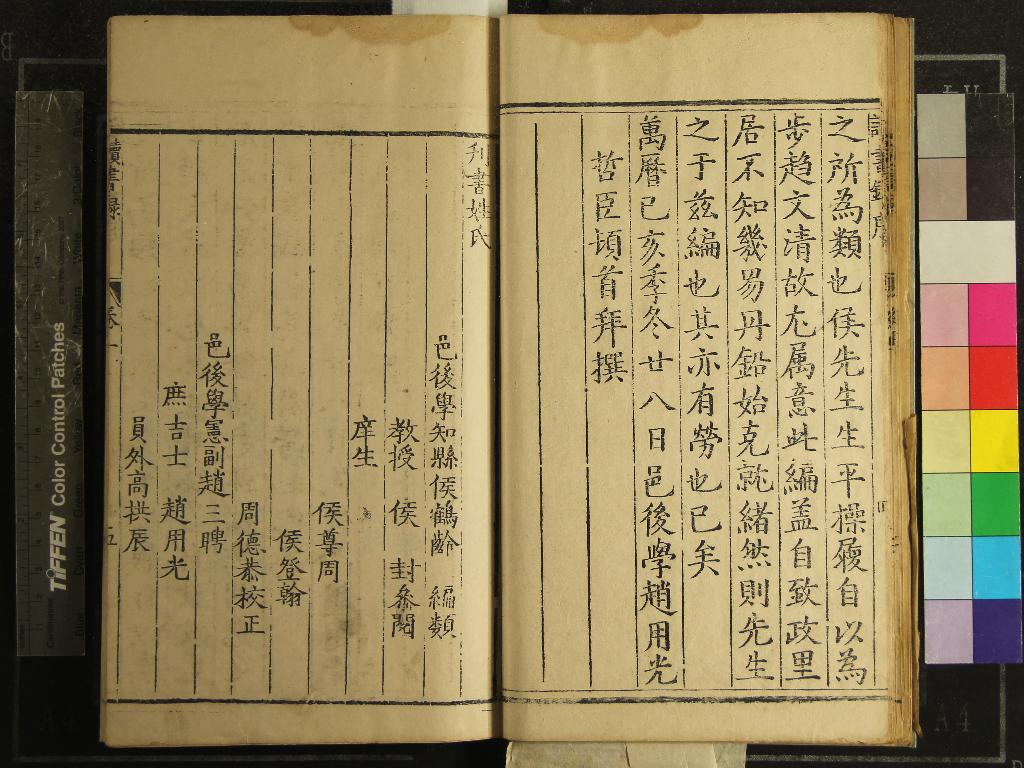 之所為類也侯先生生平操履自以為
步趋文清故尤属意此編盖自致政里
居不知幾易丹鉛始克就緒然則先生
之于兹編也其亦有勞也已矣
萬曆己亥季冬廿八日邑後學趙用光
哲臣頓首拜撰
刋書姓氏
邑後學知縣侯鶴齡 編類
教授 侯 封叅閱
庠生
侯尊周
侯登翰
周德恭挍正
邑後學憲副趙三聘
庶吉士 趙用光
員外高拱辰
讀書録
卷一
五
TIFFEN Color Control Patches